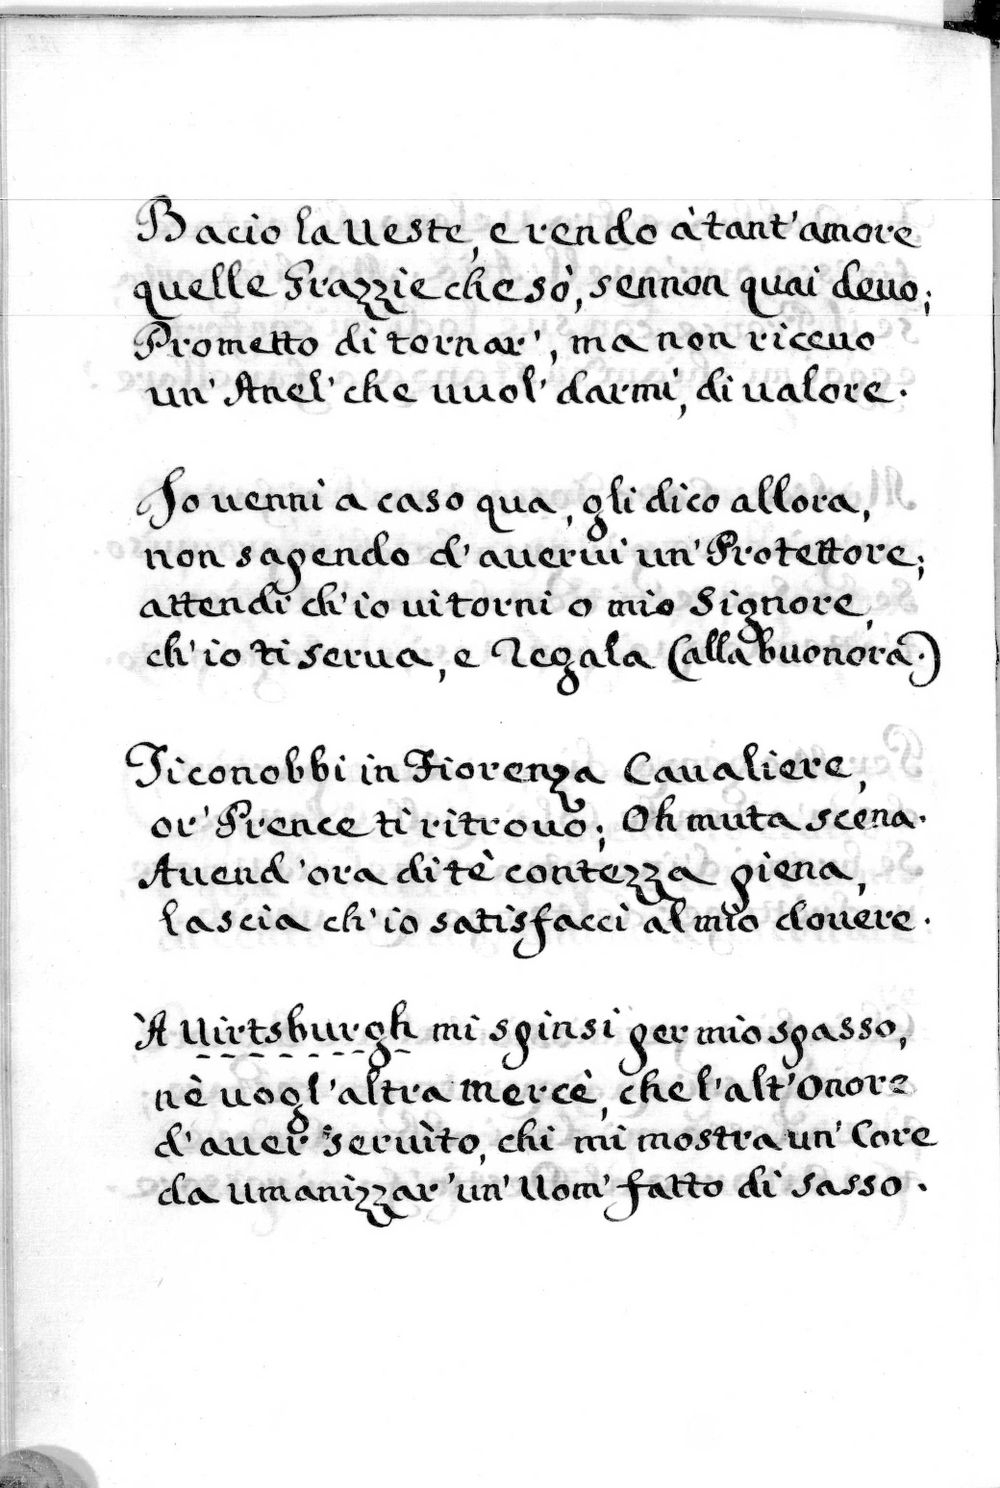 Bacio la Ueste, e rendo à tant' amore
quelle Grazzie che sò, sennon quai deuo;
Prometto di tornar', ma non riceuo
un' Anel' che uuol' darmi, di ualore.
Io uenni a caso qua, gli dico allora,
non sapendo d' auerui un' Protettore;
attendi ch' io ui torni o mio Signore,
ch' io ti serua, e Regala (alla buonora.)
Ti conobbi in Fiorenza Caualiere,
or' Prence ti ritrouo; Oh muta scena.
Auend' ora di tè contezza piena,
lascia ch' io satisfacci al mio douere.
À Uirtsburgh mi spinsi per mio spasso,
nè uogl' altra Mercè, che l' alt' Onore
d' auer Seruito, chi mi mostra un' Core
da Umanizzar' un' Uom' fatto di sasso.